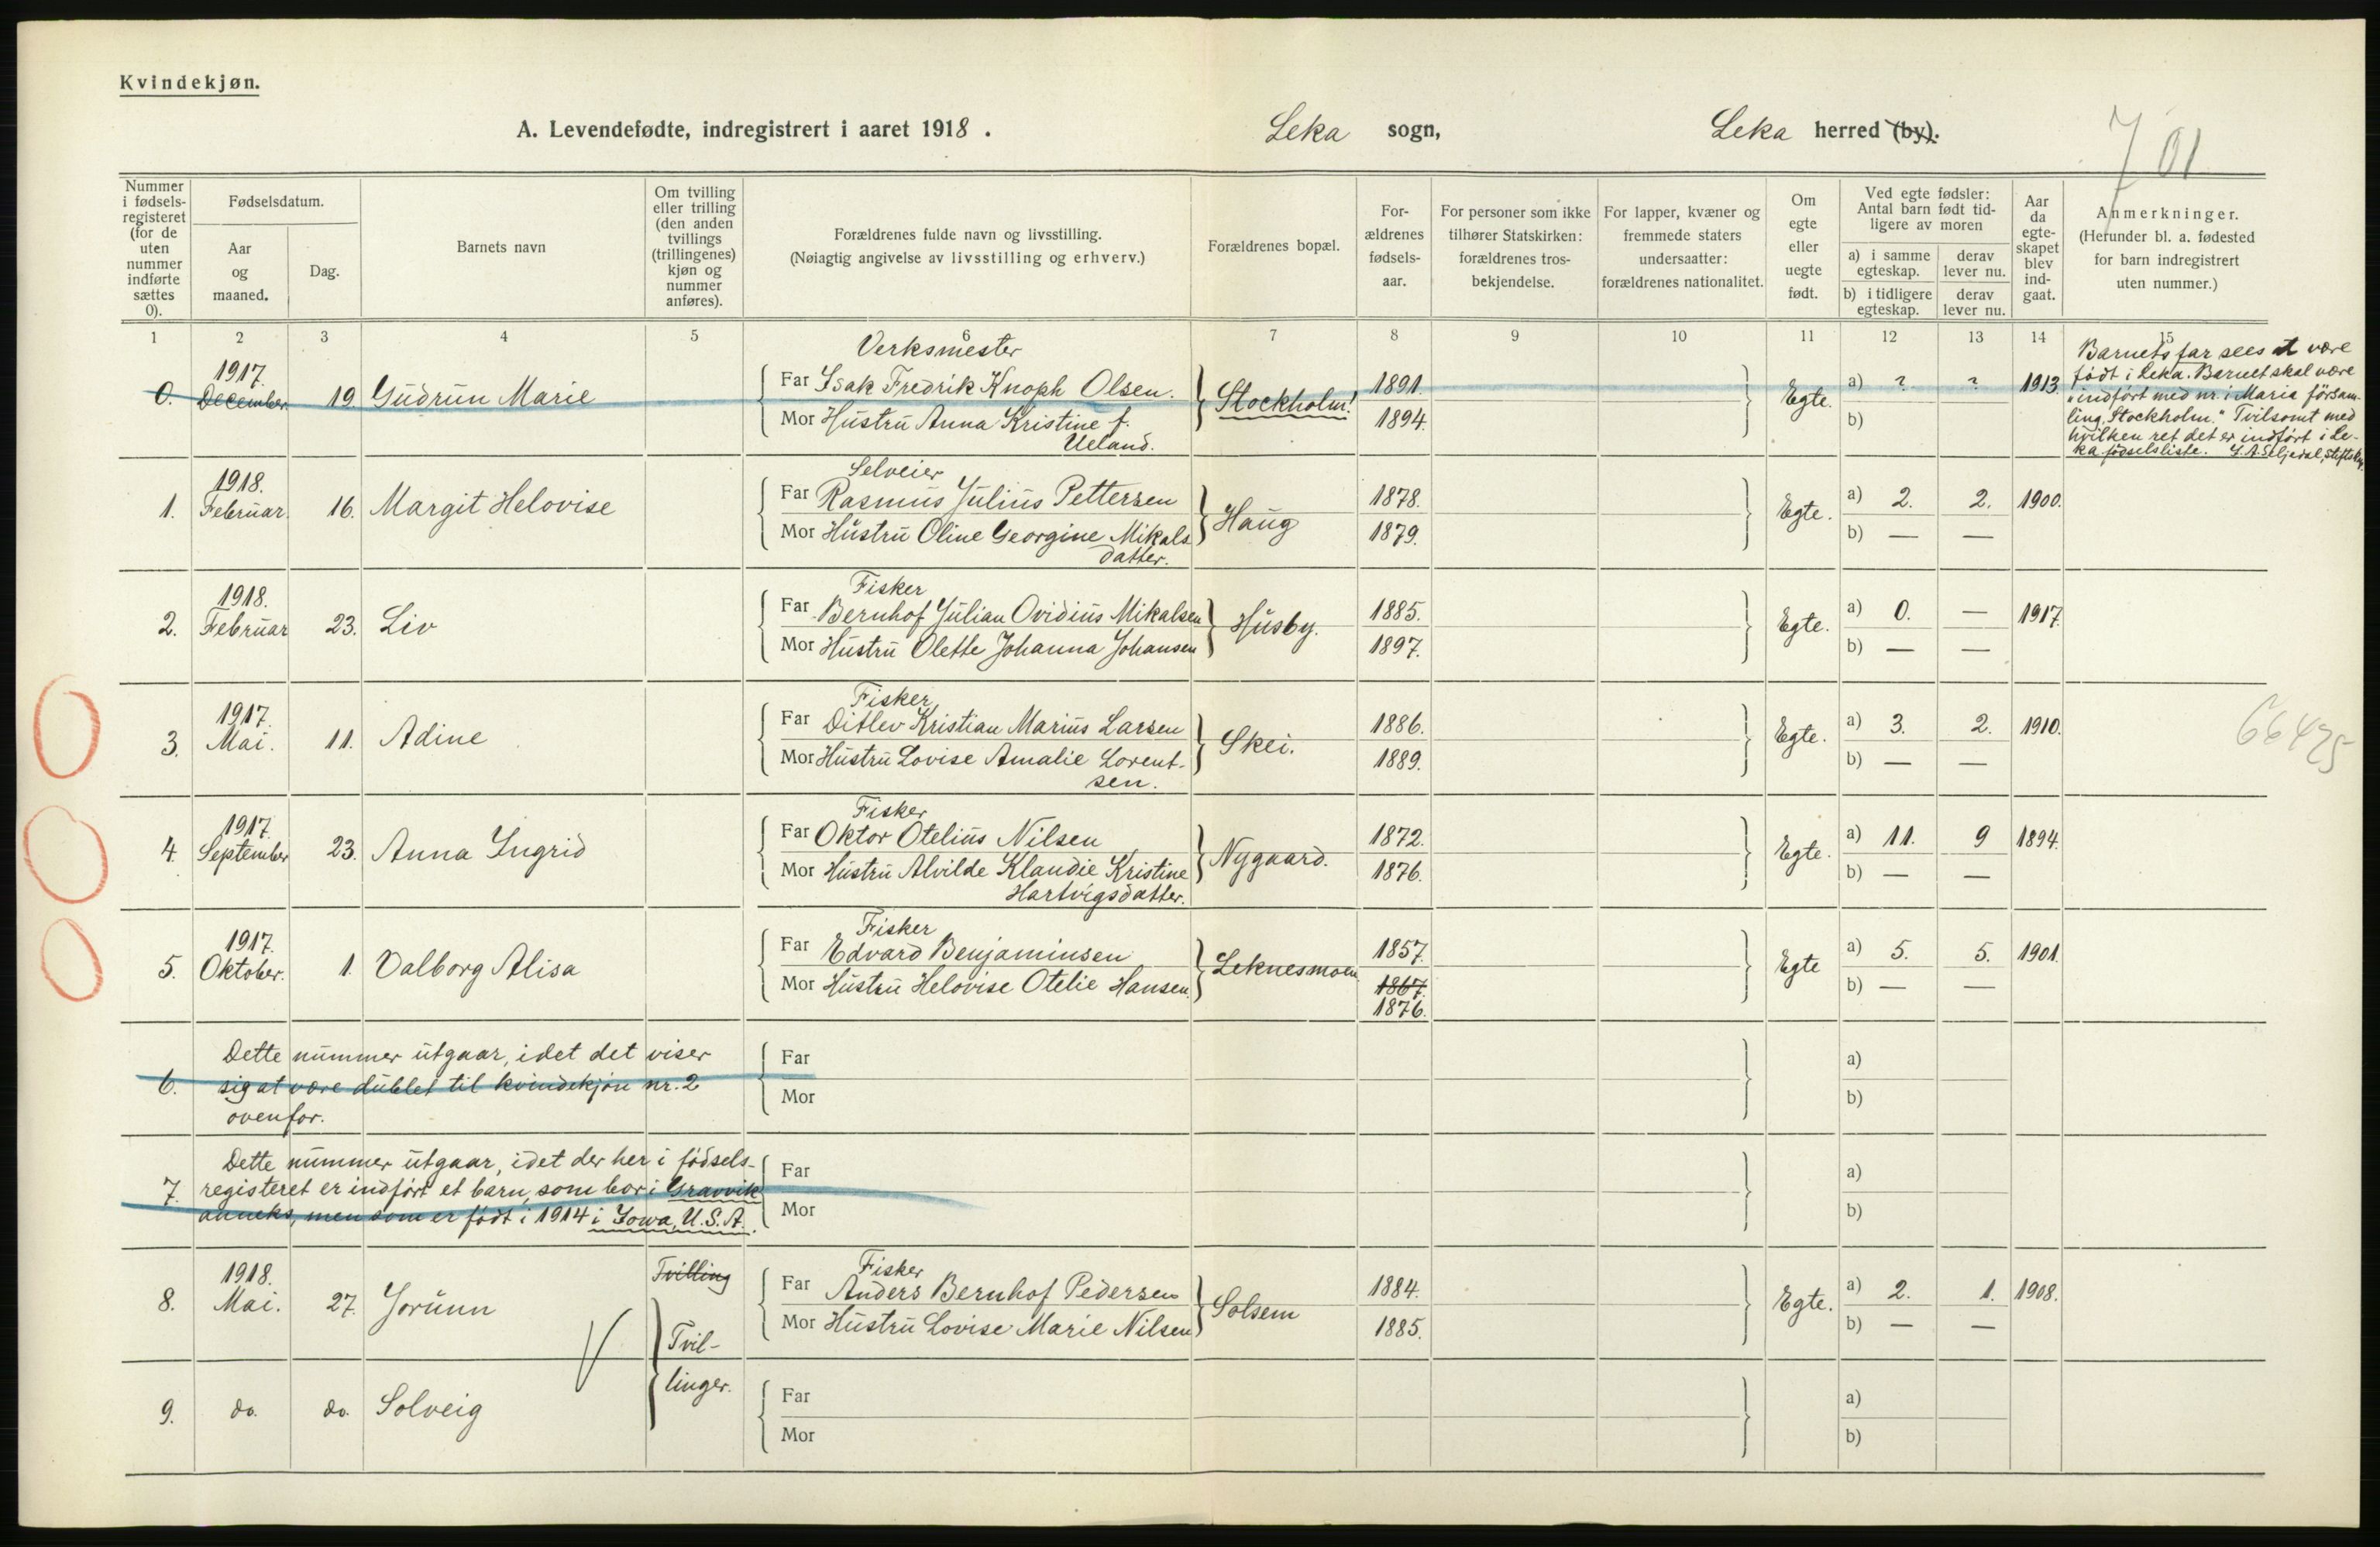 Kvindekjøn.
A. Levendefødte, indregistrert i aaret 1918 . Leka sogn, Leka herred (by).
7 01
Nummer i fødsels-registeret (for de uten nummer indførte sættes 0).
Fødselsdatum.
Aar og maaned.
Dag.
Barnets navn
Om tvilling eller trilling (den anden tvillings (trillingenes) kjøn og nummer anføres).
Forældrenes fulde navn og livsstilling.
(Nøiagtig angivelse av livsstilling og erhverv.)
Forældrenes bopæl.
For-ældrenes fødsels-aar.
For personer som ikke tilhører Statskirken: forældrenes tros-bekjendelse.
For lapper, kvæner og fremmede staters undersaatter: forældrenes nationalitet.
Om egte eller uegte født.
Ved egte fødsler: Antal barn født tid-ligere av moren
a) i samme egteskap.
derav lever nu.
b) i tidligere egteskap.
derav lever nu.
Aar da egte-skapet blev ind-gaat.
Anmerkninger.
(Herunder bl. a. fødested for barn indregistrert uten nummer.)
1 2 3 4 5 6 7 8 9 10 11 12 13 14 15
Verksmester
0. 1917. December. 19. Gudrun Marie
Far Isak Fredrik Knoph Olsen. Stockholm! 1891. Egte. a) ? ? 1913
Mor Hustru Anna Kristine f. Ueland. 1894. b)
Barnets far sees at være
født i Leka. Barnet skal være
"indført med nr. i Maria försam-
ling, Stockholm." Tvilsomt med
hvilken ret det er indført i Le-
ka fødselsliste.
Selveier
1. 1918. Februar. 16. Margit Helovise
Far Rasmus Julius Pettersen Haug 1878. Egte. a) 2. 2. 1900.
Mor Hustru Oline Georgine Mikals datter. 1879. b) — —
Fisker
2. 1918. Februar 23. Liv
Far Bernhof Julian Ovidius Mikalsen Husby. 1885. Egte. a) 0. — 1917.
Mor Hustru Olette Johanna Johansen 1897. b) — —
Fisker
3. 1917. Mai. 11. Adine
Far Ditlev Kristian Marius Larsen Skei. 1886. Egte. a) 3. 2. 1910.
Mor Hustru Lovise Amalie Lorent-sen. 1889. b) — —
66425
Fisker
4. 1917. September 23. Anna Ingrid
Far Oktor Otelius Nilsen Nygaard. 1872. Egte. a) 11. 9 1894.
Mor Hustru Alvilde Klaudie Kristine Hartvigsdatter. 1876. b) — —
Fisker
5. 1917. Oktober. 1. Valborg Alisa
Far Edvard Benjaminsen Leknesmoen 1857. Egte a) 5. 5. 1901.
Mor Hustru Helovise Otelie Hansen. 1867. 1876. b) — —
6. Dette nummer utgaar, idet det viser
sig at være dublet til kvindekjøn nr. 2
ovenfor.
Far a)
Mor b)
7. Dette nummer utgaar, idet der her i fødsels-
registeret er indført et barn, som bor i Gravvik
anneks, men som er født i 1914 i Iowa, U.S.A.
Far a)
Mor b)
Fisker
8. 1918. Mai. 27. Jorunn Tvilling
Far Anders Bernhof Pedersen Solsem 1884. Egte. a) 2. 1. 1908.
Mor Hustru Lovise Marie Nilsen 1885. b) — —
Tvil-
linger.
9. do. do. Solveig
Far a)
Mor b)